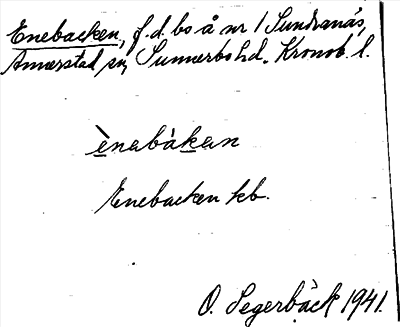 Enebacken, f.d. bo å nr 1 Sundranäs,
Annerstad sn, Sunnerbo hd, Kronob. l.
ènabàkan
Enebacken kb.
O. Segerbäck 1941.